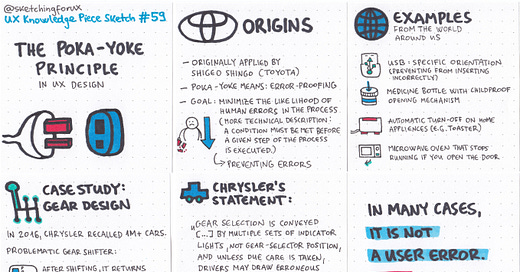 @sketchingforux
UX Knowledge Piece Sketch #59
THE POKA-YOKE
PRINCIPLE
IN UX DESIGN
ORIGINS
– ORIGINALLY APPLIED BY
SHIGEO SHINGO (TOYOTA)
– POKA-YOKE MEANS: ERROR-PROOFING
– GOAL: MINIMIZE THE LIKELIHOOD OF
HUMAN ERRORS IN THE PROCESS
(MORE TECHNICAL DESCRIPTION:
A CONDITION MUST BE MET BEFORE
A GIVEN STEP OF THE PROCESS
IS EXECUTED.)
PREVENTING ERRORS
EXAMPLES
FROM THE WORLD
AROUND US
USB: SPECIFIC ORIENTATION
(PREVENTING FROM INSERTING
INCORRECTLY)
MEDICINE BOTTLE WITH CHILDPROOF
OPENING MECHANISM
AUTOMATIC TURN-OFF ON HOME
APPLIANCES (E.G. TOASTER)
MICROWAVE OVEN THAT STOPS
RUNNING IF YOU OPEN THE DOOR
CASE STUDY:
GEAR DESIGN
IN 2016, CHRYSLER RECALLED 1M+ CARS.
PROBLEMATIC GEAR SHIFTER:
AFTER SHIFTING, IT RETURNS
CHRYSLER'S
STATEMENT:
"GEAR SELECTION IS CONVEYED
[...] BY MULTIPLE SETS OF INDICATOR
LIGHTS, NOT GEAR-SELECTOR POSITION,
AND UNLESS DUE CARE IS TAKEN,
DRIVERS MAY DRAW ERRONEOUS
IN MANY CASES,
IT IS NOT
A USER ERROR.